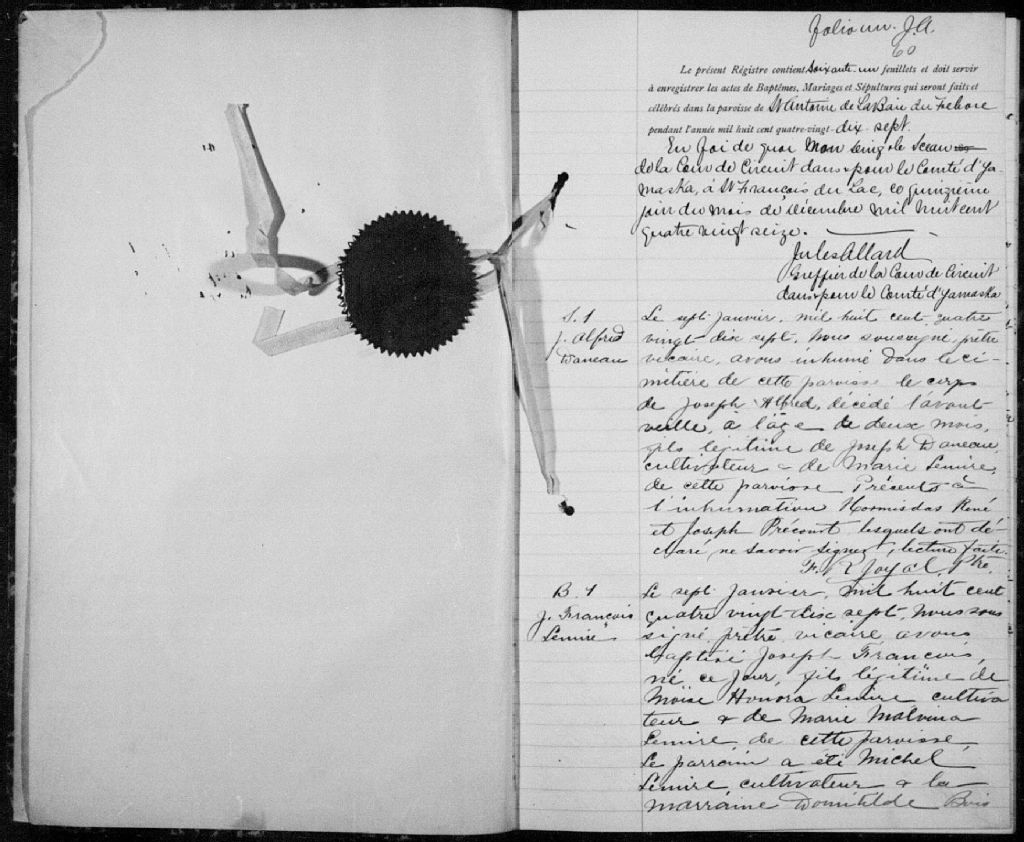 folio un. J.A.
60
Le présent Régistre contient soixante-un feuillets et doit servir
à enregistrer les actes de Baptêmes, Mariages et Sépultures qui seront faits et
célébrés dans la paroisse de St Antoine de LaBaie du Febvre
pendant l'année mil huit cent quatre-vingt-dix sept.
En foi de quoi mon seing & le Sceau
de la Cour de Circuit dans & pour le Comté d'Ya-
maska, à St François du Lac, ce quinzième
jour du mois de décembre mil huit cent
quatre vingt seize.
Jules Allard
Greffier de la Cour de Circuit
dans & pour le Comté d'Yamaska
S. 1
J. Alfred
Daneau
Le sept janvier, mil huit cent quatre
vingt dix sept, nous soussigné, prêtre
vicaire, avons inhumé dans le ci-
mêtière de cette paroisse le corps
de Joseph Alfred, décédé l'avant
veille, à l'âge de deux mois,
fils légitime de Joseph Daneau,
cultivateur & de Marie Lemire,
de cette paroisse Présents à
l'inhumation Hormisdas René
et Joseph Précourt lesquels ont dé-
claré ne savoir signer, lecture faite.
Joyal, Ptre.
B. 1
J. François
Lemire
Le sept janvier, mil huit cent
quatre vingt-dix sept, nous sous
signé, prêtre, vicaire, avons
baptisé Joseph François,
né ce jour, fils légitime de
Moïse Honora Lemire cultiva
teur & de Marie Malvina
Lemire, de cette paroisse,
Le parrain a été Michel
Lemire, cultivateur & la
marraine Domitilde Bois